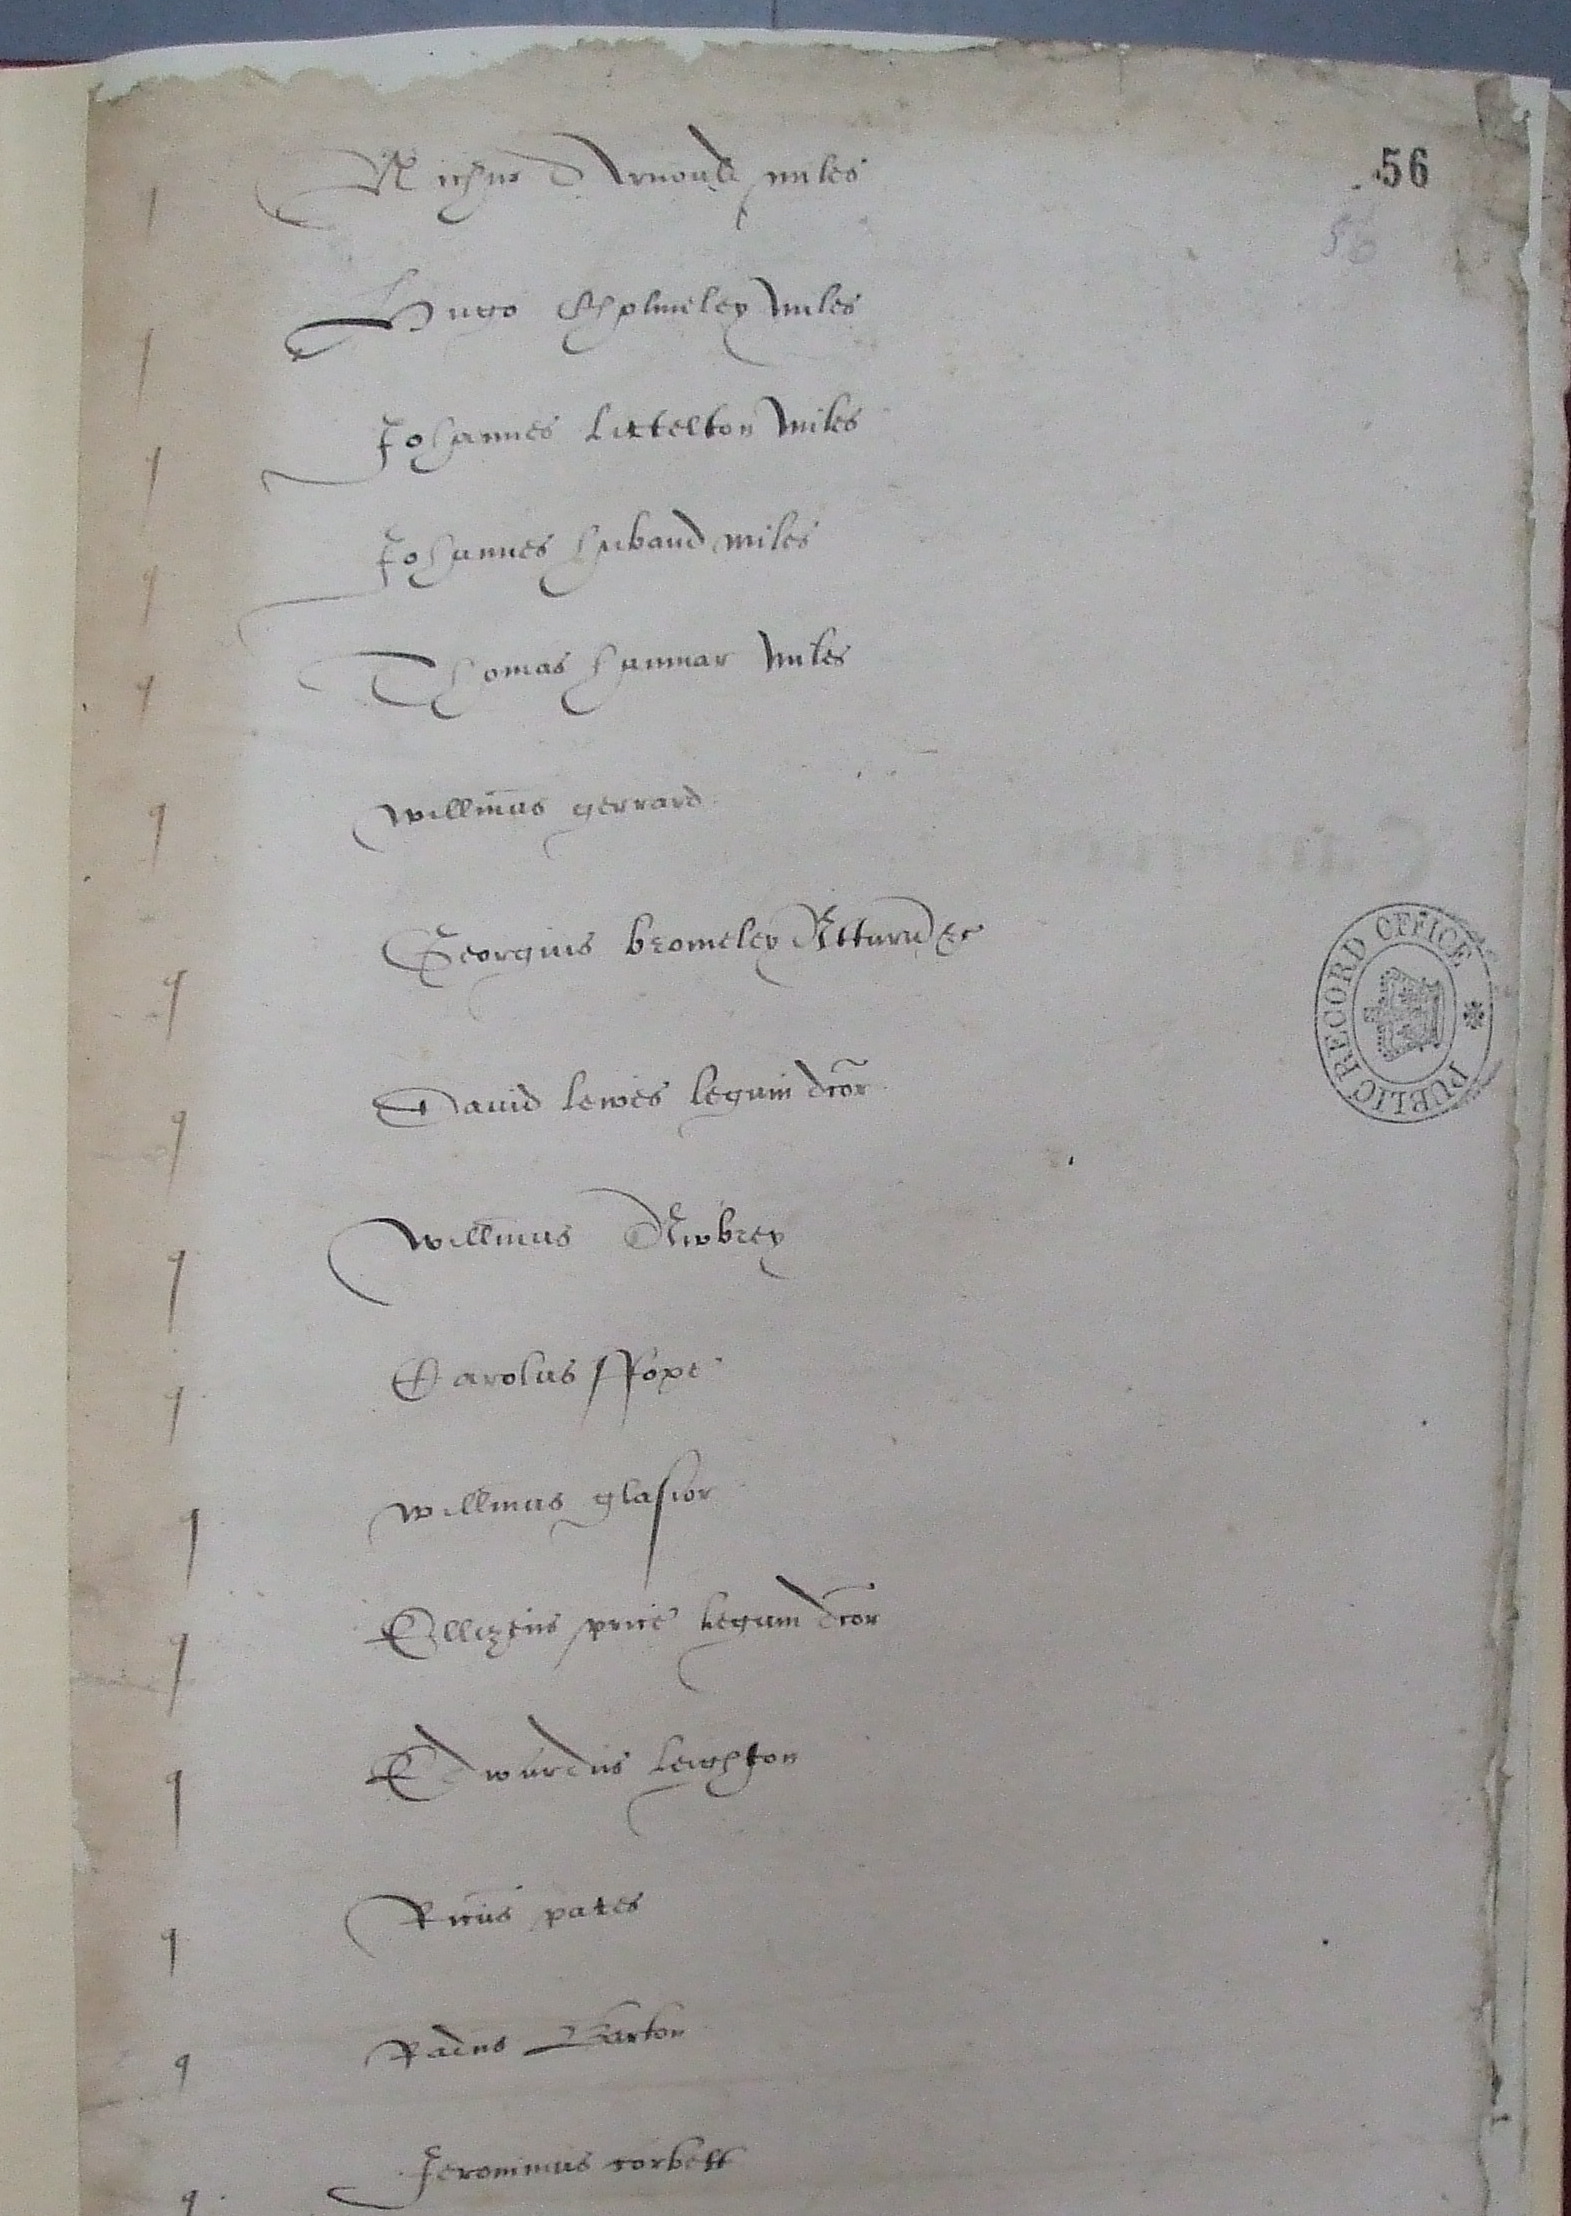 Nichus Arnould miles
56
56
Hugo Cholmeley miles
Johannes Littelton miles
Johannes hubaud miles
Thomas hanmar miles
willmus gerrard
Georgius bromeley Atturn &c
PUBLIC RECORD OFFICE
David lewes legum dcor
willmus Awbrey
Carolus ffoxe
willmus glasior
Ellizeus price legum dcor
Edwardus leighton
Ricus pates
Radus Barton
Jeronimus corbett